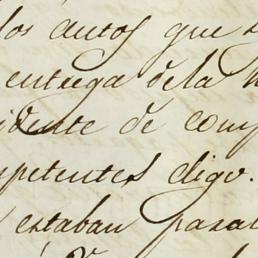 los autos que
entrega de la
idente de com
petentes digo.
estaban pasa